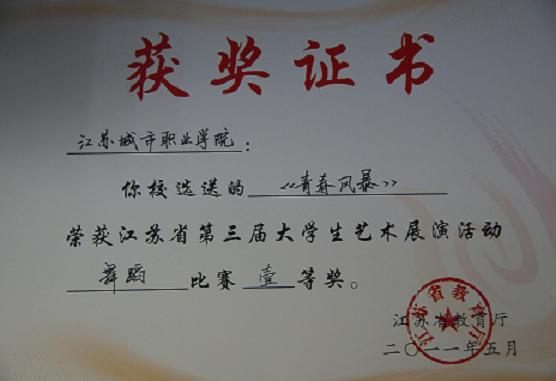 获奖证书
江苏城市职业学院：
你校选送的《青春风暴》
荣获江苏省第三届大学生艺术展演活动
舞蹈比赛壹等奖。
江苏省教育厅
江苏省教育厅
二〇一一年五月